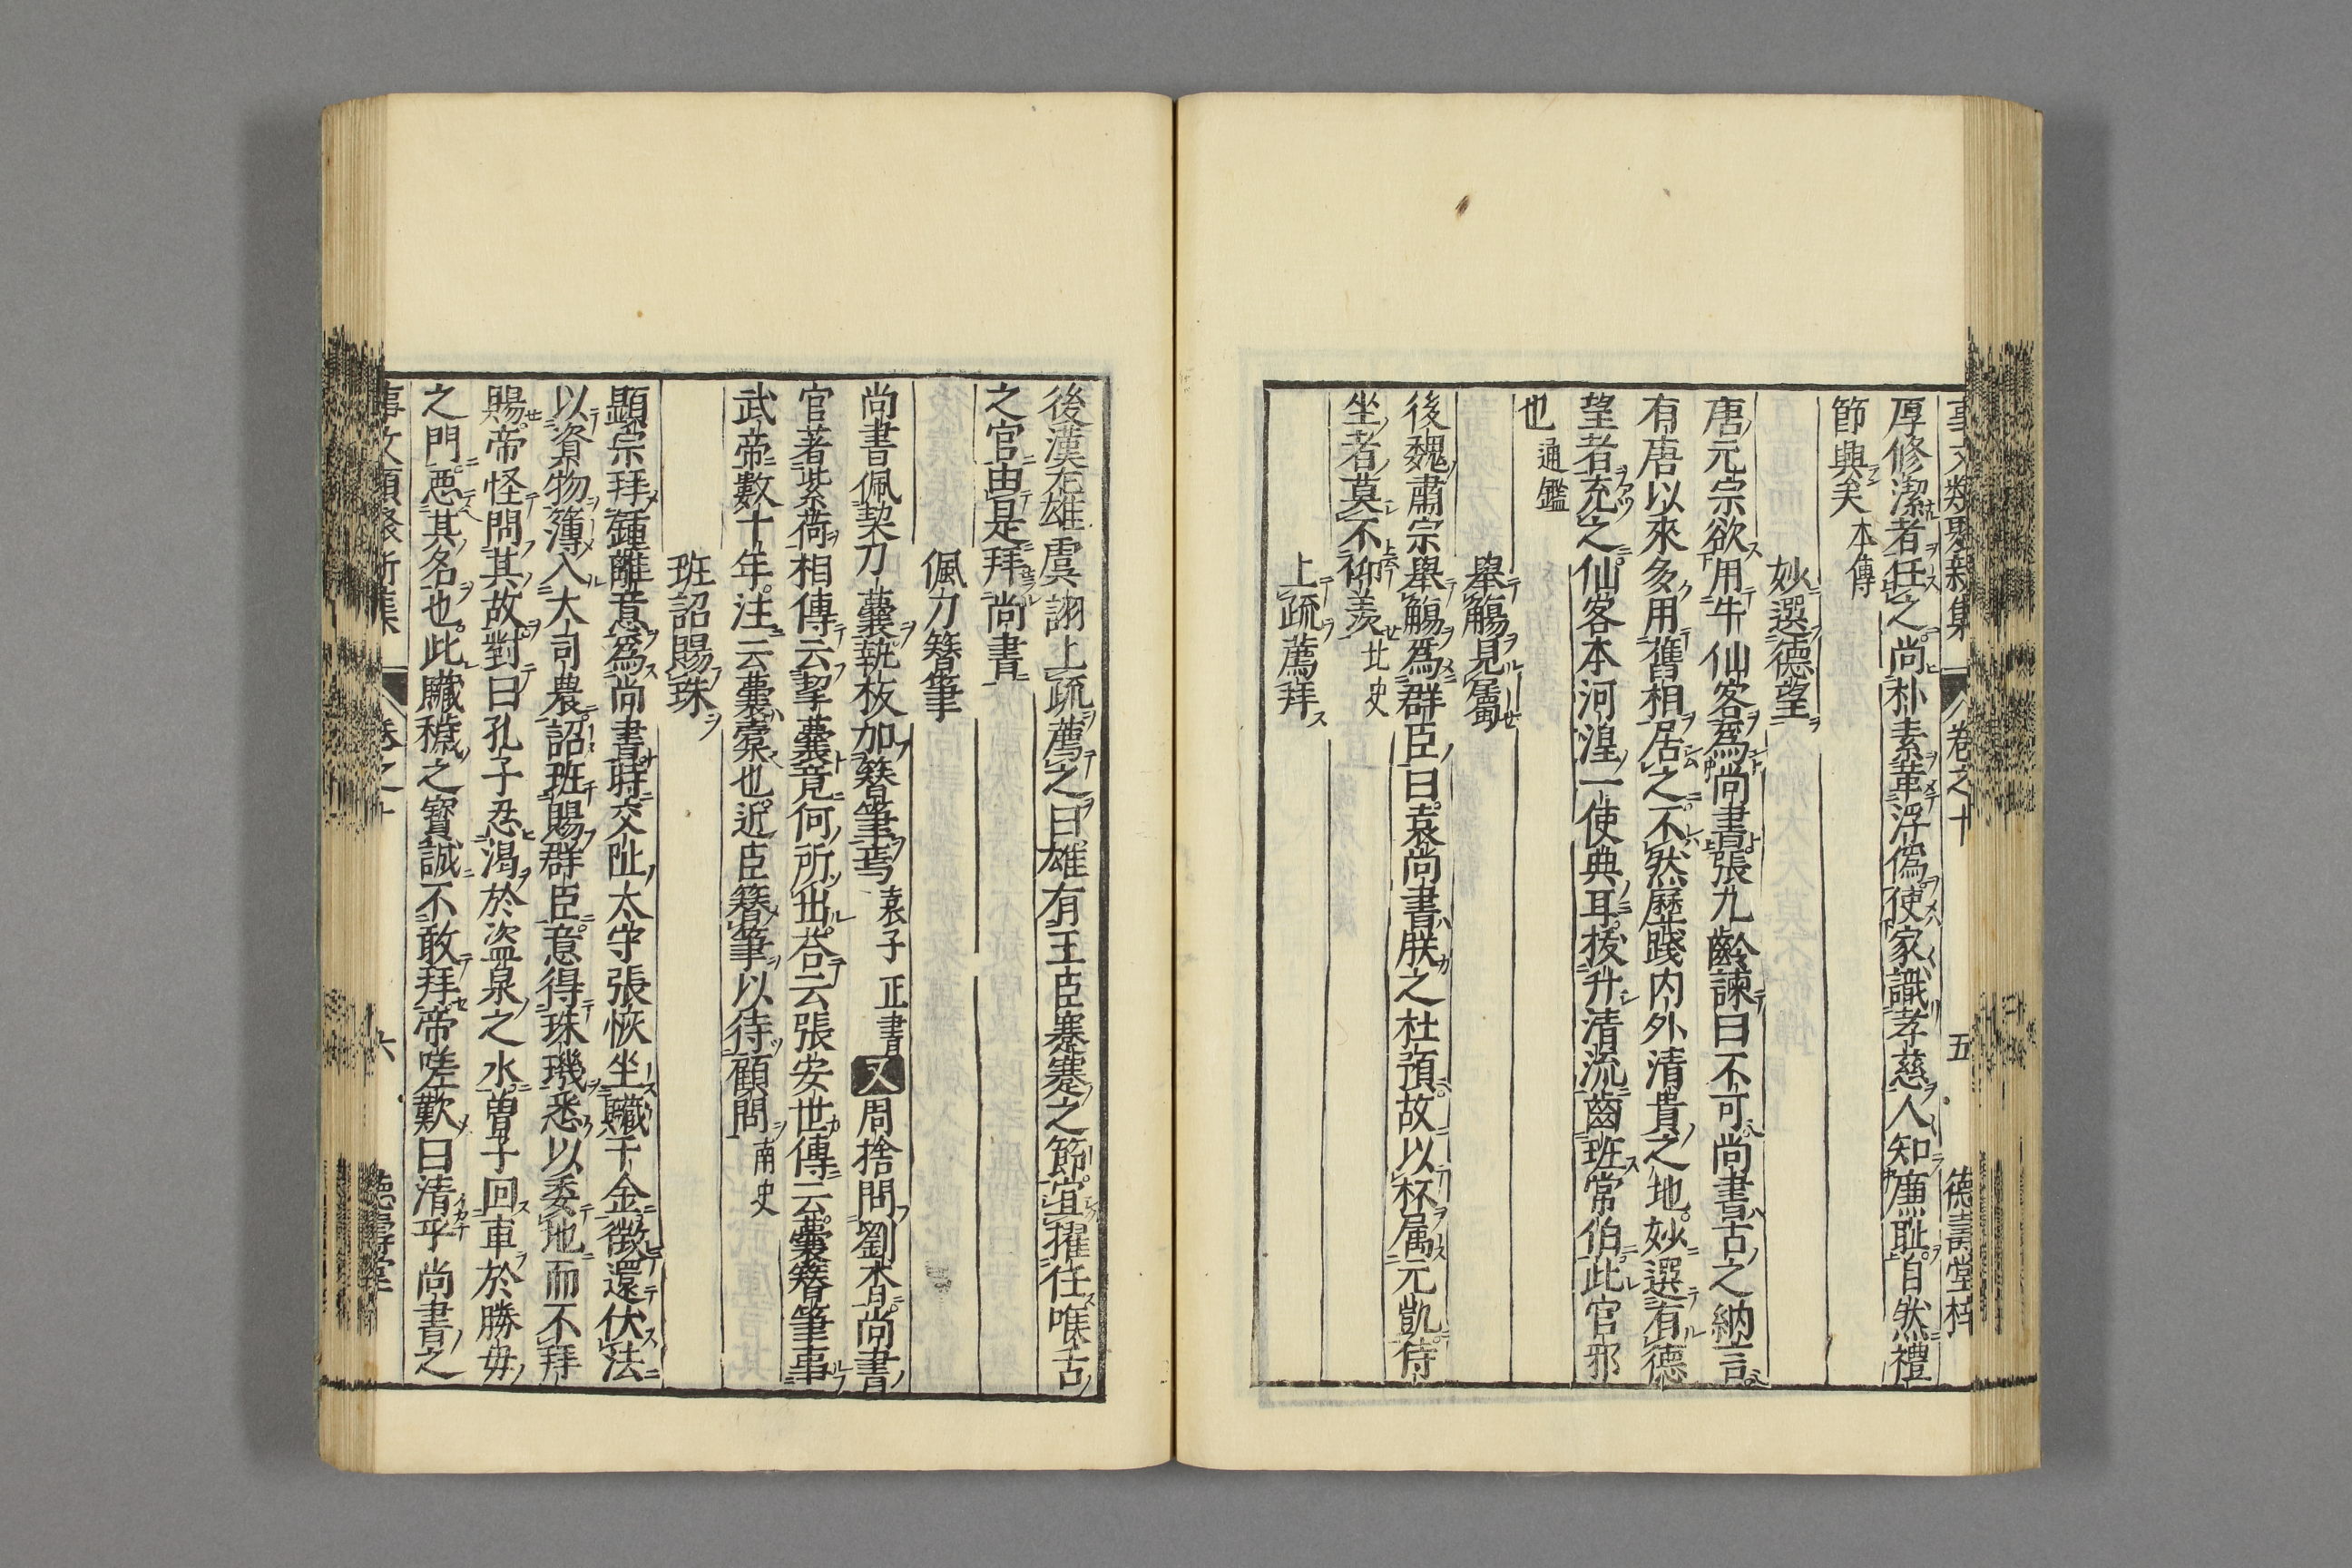 事文類聚新集 卷之十 五 德壽堂梓
厚修潔者任之尚朴素革浮偽使家識孝慈人知廉耻自然禮
節興矣 本傳
妙選德望
唐元宗欲用牛仙客爲尚書張九齡諫曰不可尚書古之納言
有唐以來多用舊相居之不然歷踐内外清貴之地妙選有德
望者充之仙客本河湟一使典耳拔升清流齒班常伯此官邪
也 通鑑
舉觴見屬
後魏肅宗舉觴爲群臣曰袁尚書朕之杜預故以杯属元凱侍
坐者莫不仰羨 北史
上疏薦拜
後漢左雄虞詡上疏薦之曰雄有王臣蹇蹇之節宜擢任喉舌
之官由是拜尚書
佩刀簪筆
尚書佩契刀囊執板加簪筆焉 袁子正書 又周捨問劉杳尚書
官著紫荷相傳云挈囊竟何所出荅云張安世傳云橐簪筆事
武帝數十年注云囊橐也近臣簪筆以待顧問 南史
班詔賜珠
顯宗拜鍾離意爲尚書時交阯太守張恢坐贓千金徵還伏法
以資物簿入大司農詔班賜群臣意得珠璣悉以委地而不拜
賜帝怪問其故對曰孔子忍渴於盗泉之水曽子回車於勝母
之門惡其名也此贓穢之寳誠不敢拜帝嗟歎曰清乎尚書之
事文類聚新集 卷之十 六 德壽堂